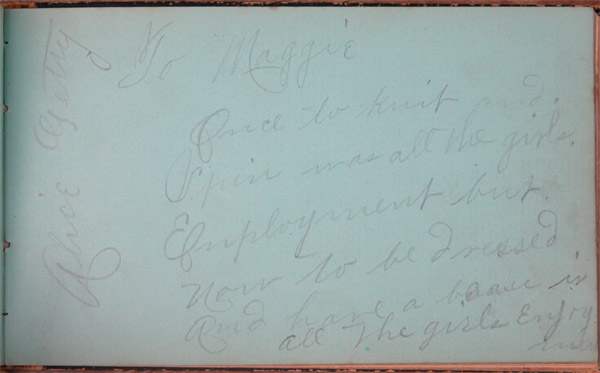 To Maggie
Once to knit and.
Spin was all the girls.
Employment but.
Now to be dressed
And have a beau is
all the girls Enjoy
ment
Alice Getty